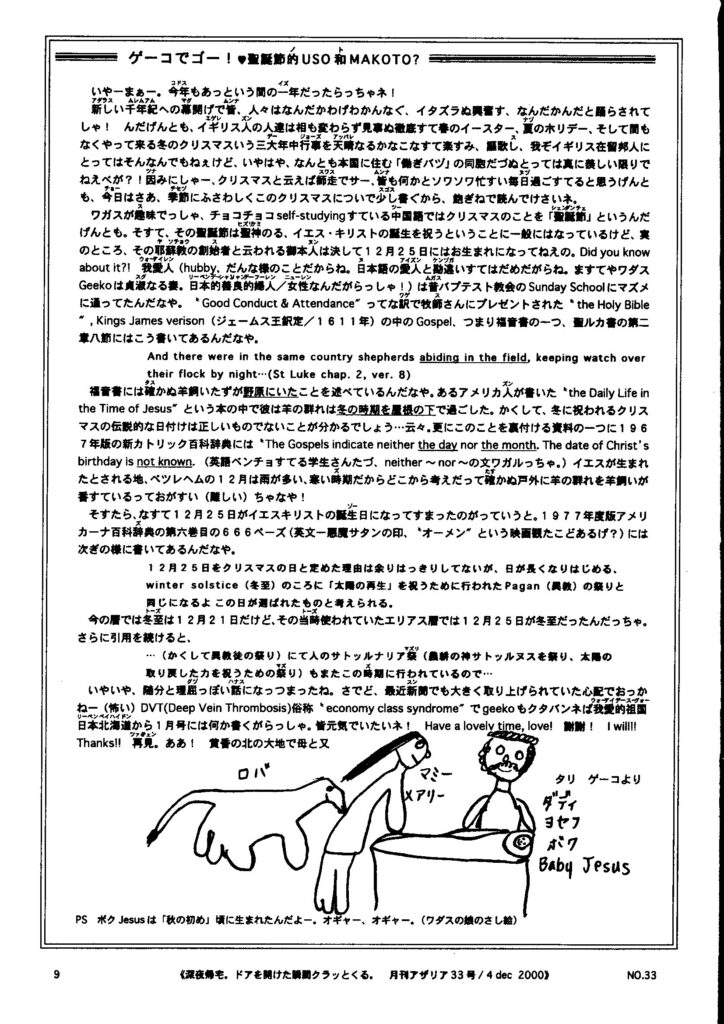 ゲーコでゴー！♥聖誕節的USO和MAKOTO？
いやーまぁー。今年もあっという間の一年だったらっちゃネ！
新しい千年紀への幕開けで皆、人々はなんだかわけわかんなぐ、イタズラぬ興奮す、なんだかんだと踊らされて
しゃ！ んだげんとも、イギリス人の人達は相も変わらず見事ぬ徹底すて春のイースター、夏のホリデー、そして間も
なくやって来る冬のクリスマスいう三大年中行事を天晴なるかなこなすて楽すみ、謳歌し、我ぞイギリス在留邦人に
とってはそんなんでもねぇけど、いやはや、なんとも本国に住む「働ぎバヅ」の同胞だづぬとっては真に羨しい限りで
ねえべが？！因みにしゃー、クリスマスと云えば師走でサー、皆も何かとソワソワ忙すい毎日過ごすてると思うげんと
も、今日はさあ、季節にふさわしくこのクリスマスについで少し書ぐから、飽ぎねで読んでけさいネ。
ワガスが趣味でっしゃ、チョコチョコself-studyingすている中国語ではクリスマスのことを「聖誕節」というんだ
げんとも。そすて、その聖誕節は聖神のる、イエス・キリストの誕生を祝うということに一般にはなっているけど、実
のところ、その耶蘇教の創始者と云われる御本人は決して１２月２５日にはお生まれになってねえの。Did you know
about it?! 我愛人（hubby、だんな様のことだからね。日本語の愛人と勘違いすてはだめだがらね。ますてやワダス
Geekoは貞淑なる妻。日本的善良的婦人／女性なんだがらっしゃ！）は昔バプテスト教会のSunday Schoolにマズメ
に通ってたんだなや。“Good Conduct & Attendance”ってな訳で牧師さんにプレゼントされた“the Holy Bible
”, Kings James verison（ジェームス王欽定／１６１１年）の中のGospel、つまり福音書の一つ、聖ルカ書の第二
章八節にはこう書いてあるんだなや。
And there were in the same country shepherds abiding in the field, keeping watch over
their flock by night…(St Luke chap. 2, ver. 8)
福音書には確かぬ羊飼いたずが野原にいたことを述べているんだなや。あるアメリカ人が書いた“the Daily Life in
the Time of Jesus”という本の中で彼は羊の群れは冬の時期を屋根の下で過ごした。かくして、冬に祝われるクリス
マスの伝説的な日付けは正しいものでないことが分かるでしょう…云々。更にこのことを裏付ける資料の一つに１９６
７年版の新カトリック百科辞典には“The Gospels indicate neither the day nor the month. The date of Christ's
birthday is not known.（英語ベンチョすてる学生さんたづ、neither～nor～の文ワガルっちゃ。）イエスが生まれ
たとされる地、ベツレヘムの１２月は雨が多い、寒い時期だからどこから考えだって確かぬ戸外に羊の群れを羊飼いが
番すているっておがすい（難しい）ちゃなや！
そすたら、なすて１２月２５日がイエスキリストの誕生日になってすまったのがっていうと。１９７７年度版アメリ
カーナ百科辞典の第六巻目の６６６ページ（英文ー悪魔サタンの印、“オーメン”という映画観たこどあるげ？）には
次ぎの様に書いてあるんだなや。
１２月２５日をクリスマスの日と定めた理由は余りはっきりしてないが、日が長くなりはじめる、
winter solstice（冬至）のころに「太陽の再生」を祝うために行われたPagan（異教）の祭りと
同じになるよ この日が選ばれたものと考えられる。
今の暦では冬至は１２月２１日だけど、その当時使われていたエリアス暦では１２月２５日が冬至だったんだっちゃ。
さらに引用を続けると、
…（かくして異教徒の祭り）にて人のサトッルナリア祭（農耕の神サトッルヌスを祭り、太陽の
取り戻した力を祝うための祭り）もまたこの時期に行われているので…
いやいや、随分と理屈っぽい話になっつまったね。さでど、最近新聞でも大きく取り上げられていた心配でおっか
ねー（怖い）DVT(Deep Vein Thrombosis)俗称“economy class syndrome”でgeekoもクタバンネば我愛的祖国
日本北海道から１月号には何か書くがらっしゃ。皆元気でいたいネ！ Have a lovely time, love! 謝謝！ I will!!
Thanks!! 再見。ああ！ 黄昏の北の大地で母と又
ロバ
マミー
メアリー
タリ ゲーコより
ダディ
ヨセフ
ボク
Baby Jesus
PS ボクJesusは「秋の初め」頃に生まれたんだよー。オギャー、オギャー。（ワダスの娘のさし絵）
9 《深夜帰宅。ドアを開けた瞬間クラッとくる。 月刊アザリア33号/4 dec 2000》 NO.33